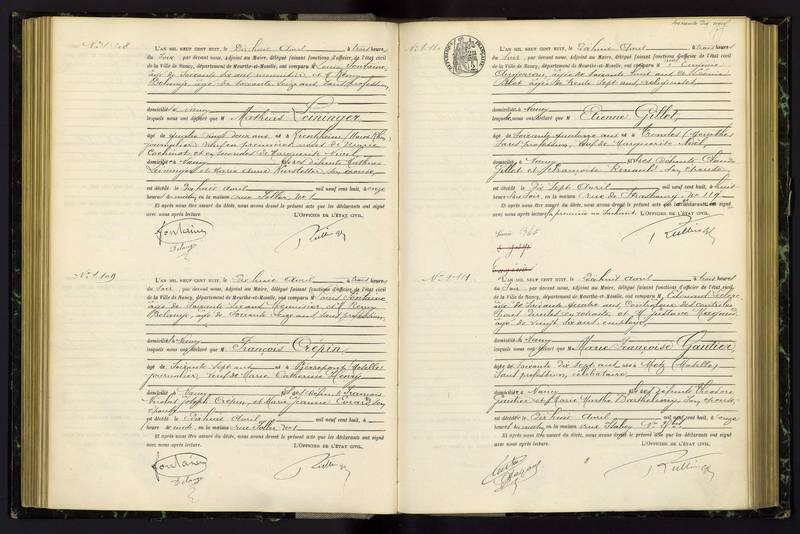 N° 1.108
L'AN MIL NEUF CENT HUIT, le Dix huit Avril à trois heures
du Soir, par devant nous, Adjoint au Maire, délégué faisant fonctions d'officier de l'état civil
de la Ville de Nancy, département de Meurthe-et-Moselle, ont comparu M. Louis Fontaine,
âgé de Soixante Six ans, et M. Rémy
Delange, âgé de Soixante Seize ans, Sans profession,
domiciliés à Nancy
lesquels nous ont déclaré que M. Mathias Leininger,
âgé de quatre vingt deux ans né à (Haut Rhin)
journalier, veuf en premières noces de
et en secondes de Marguerite
domicilié à Nancy fils des défunts Mathias
Leininger et Marie Anna son épouse,
est décédé le Dix huit Avril mil neuf cent huit, à onze
heures du matin, en la maison rue Foller, N° 1
Et après nous être assuré du décès, nous avons dressé le présent acte que les déclarants ont signé
avec nous après lecture. L'OFFICIER DE L'ÉTAT CIVIL,
Fontaine
Delange
N° 1.109
L'AN MIL NEUF CENT HUIT, le Dix huit Avril à trois heures
du Soir, par devant nous, Adjoint au Maire, délégué faisant fonctions d'officier de l'état civil
de la Ville de Nancy, département de Meurthe-et-Moselle, ont comparu M. Louis Fontaine
âgé de Soixante Six ans, et M. Rémy
Delange, âgé de Soixante Seize ans, Sans profession,
domiciliés à Nancy
lesquels nous ont déclaré que M. François Crépin,
âgé de Soixante Sept ans né à Pierrepont (Moselle)
journalier, veuf de Marie Catherine Henry
domicilié à Nancy fils des défunts François
Nicolas Joseph Crépin, et Marie Jeanne Evrard Son
épouse
est décédé le Dix huit Avril mil neuf cent huit, à
heures en la maison rue Foller N° 1
Et après nous être assuré du décès, nous avons dressé le présent acte que les déclarants ont signé
avec nous après lecture. L'OFFICIER DE L'ÉTAT CIVIL,
Fontaine
Delange
N° 1.110
RÉPUBLIQUE FRANÇAISE
L'AN MIL NEUF CENT HUIT, le Dix huit Avril à trois heures
du Soir, par devant nous, Adjoint au Maire, délégué faisant fonctions d'officier de l'état civil
de la Ville de Nancy, département de Meurthe-et-Moselle, ont comparu M. Eugénie
âgée de Soixante huit ans et
âgée de trente Sept ans, religieuses
domiciliés à Nancy
lesquels nous ont déclaré que M. Etienne Gillot,
âgé de Soixante quatorze ans né à (Meurthe)
Sans profession, veuf de Marguerite Noël,
domicilié à Nancy fils des défunts Claude
Gillot et Françoise Renauld Son épouse
est décédé le Dix Sept Avril mil neuf cent huit, à huit
heures du Soir, en la maison rue de Strasbourg N° 119
Et après nous être assuré du décès, nous avons dressé le présent acte que les déclarants ont signé
avec nous après lecture, la première ne sachant. L'OFFICIER DE L'ÉTAT CIVIL,
N° 1.111
L'AN MIL NEUF CENT HUIT, le Dix huit Avril à trois heures
du Soir, par devant nous, Adjoint au Maire, délégué faisant fonctions d'officier de l'état civil
de la Ville de Nancy, département de Meurthe-et-Moselle, ont comparu M. Edouard
âgé de Soixante quatre ans, Contrôleur des contributions
directes en retraite, et M. Gustave
âgé de vingt six ans, employé,
domiciliés à Nancy
lesquels nous ont déclaré que M. Marie Françoise Gautier,
âgée de Soixante Dix Sept ans née Metz (Moselle)
Sans profession, célibataire
domiciliée à Nancy fille des défunts
Gautier et Marie Marthe Barthélemy Son épouse,
est décédée le Dix huit Avril mil neuf cent huit, à onze
heures du matin, en la maison rue
Et après nous être assuré du décès, nous avons dressé le présent acte que les déclarants ont signé
avec nous après lecture. L'OFFICIER DE L'ÉTAT CIVIL,